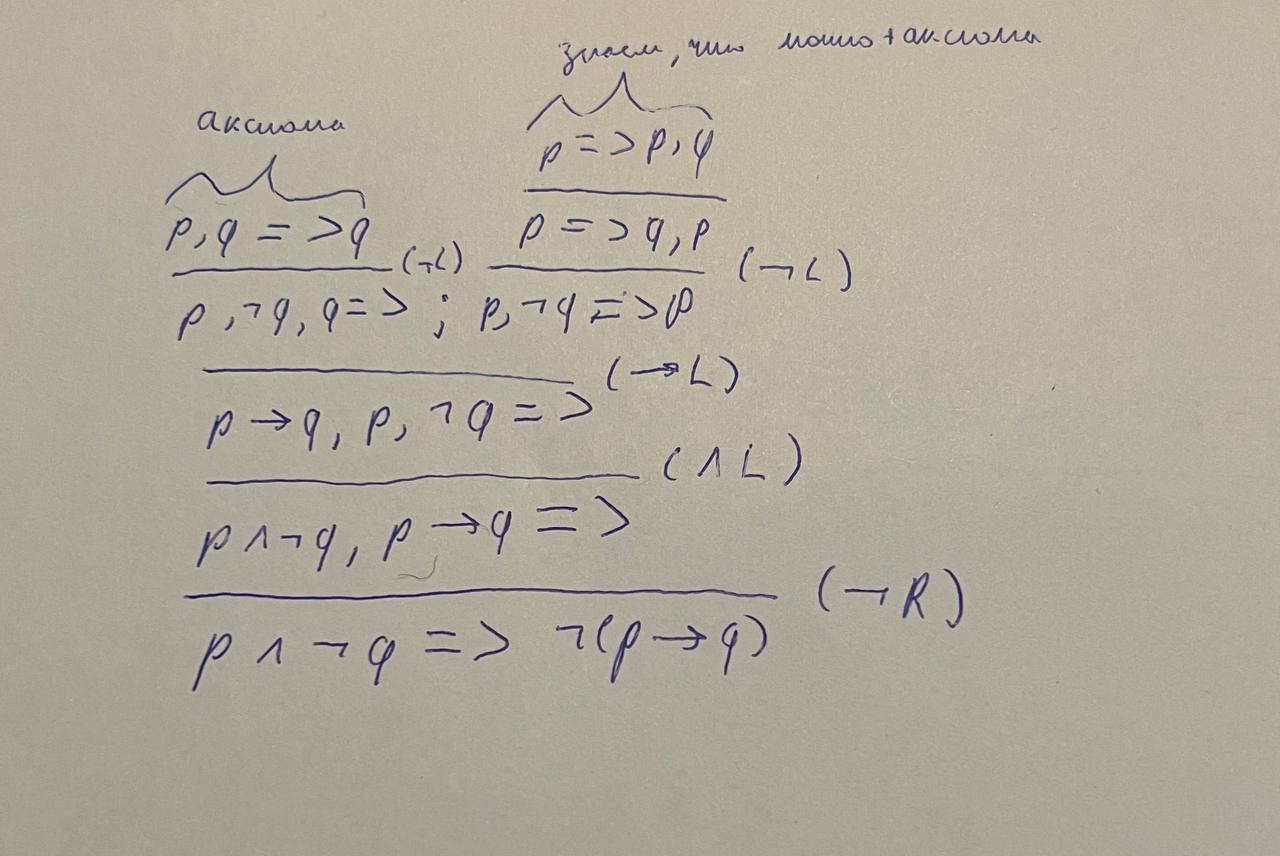 знаем, что можно + аксиома
аксиома
p => p, q
p, q => q (¬L) p => q, p (¬L)
p, ¬q, q => ; p, ¬q => p
(→L)
p → q, p, ¬q =>
(∧L)
p ∧ ¬q, p → q =>
(¬R)
p ∧ ¬q => ¬(p → q)